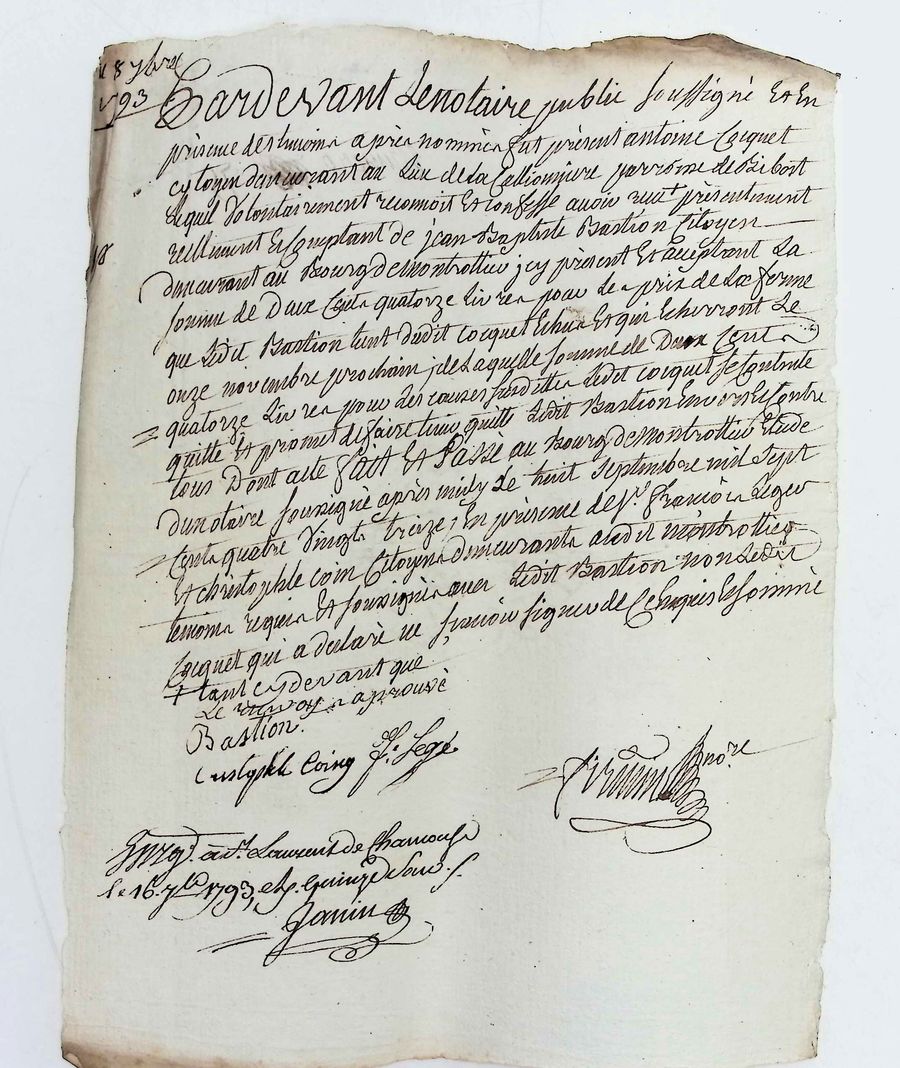 8 7bre
1793
Pardevant Lenotaire public soussigné Et En
présence des temoins aprés nommés fut présent antoine Cocquet
Cytoyen demeurant au Lieu de La parroisse de Bibost
Lequel Volontairement reconnoit Et confesse avoir reçu présentement
reellement Et Comptant de jean Baptiste Bastion Citoyen
demeurant au Bourg de montrottier jcy présent Et acceptant La
somme de Deux Cents quatorze Livres pour Le prix de La ferme
que Ledit Bastion tient dudit cocquet Echus Et qui Echerront Le
onze novembre prochain, de Laquelle somme de Deux Cents
quatorze Livres pour Les causes susdittes Ledit cocquet se Contente
quitte Et promet de faire tenir quitte Ledit Bastion Envers Et Contre
tous Dont acte fait Et Passé au Bourg de montrottier Etude
du notaire soussigné après midy Le huit septembre mil sept
Cents quatre Vingts treize, En présence de Sr. François Leger
Et christophle coin Citoyens demeurants audit montrottier
temoins requis Et soussignés avec Ledit Bastion non Ledit
Cocquet qui a declaré ne sçavoir signer de Ce Enquis Et sommé
+ tant cy devant que
Le renvoy aprouvé
Bastion
Cristophle Coing fs. Legé
nore
Enrgt. à St. Laurent de Chamousset
le 16. 7bre 1793, quinze sous.
Janin